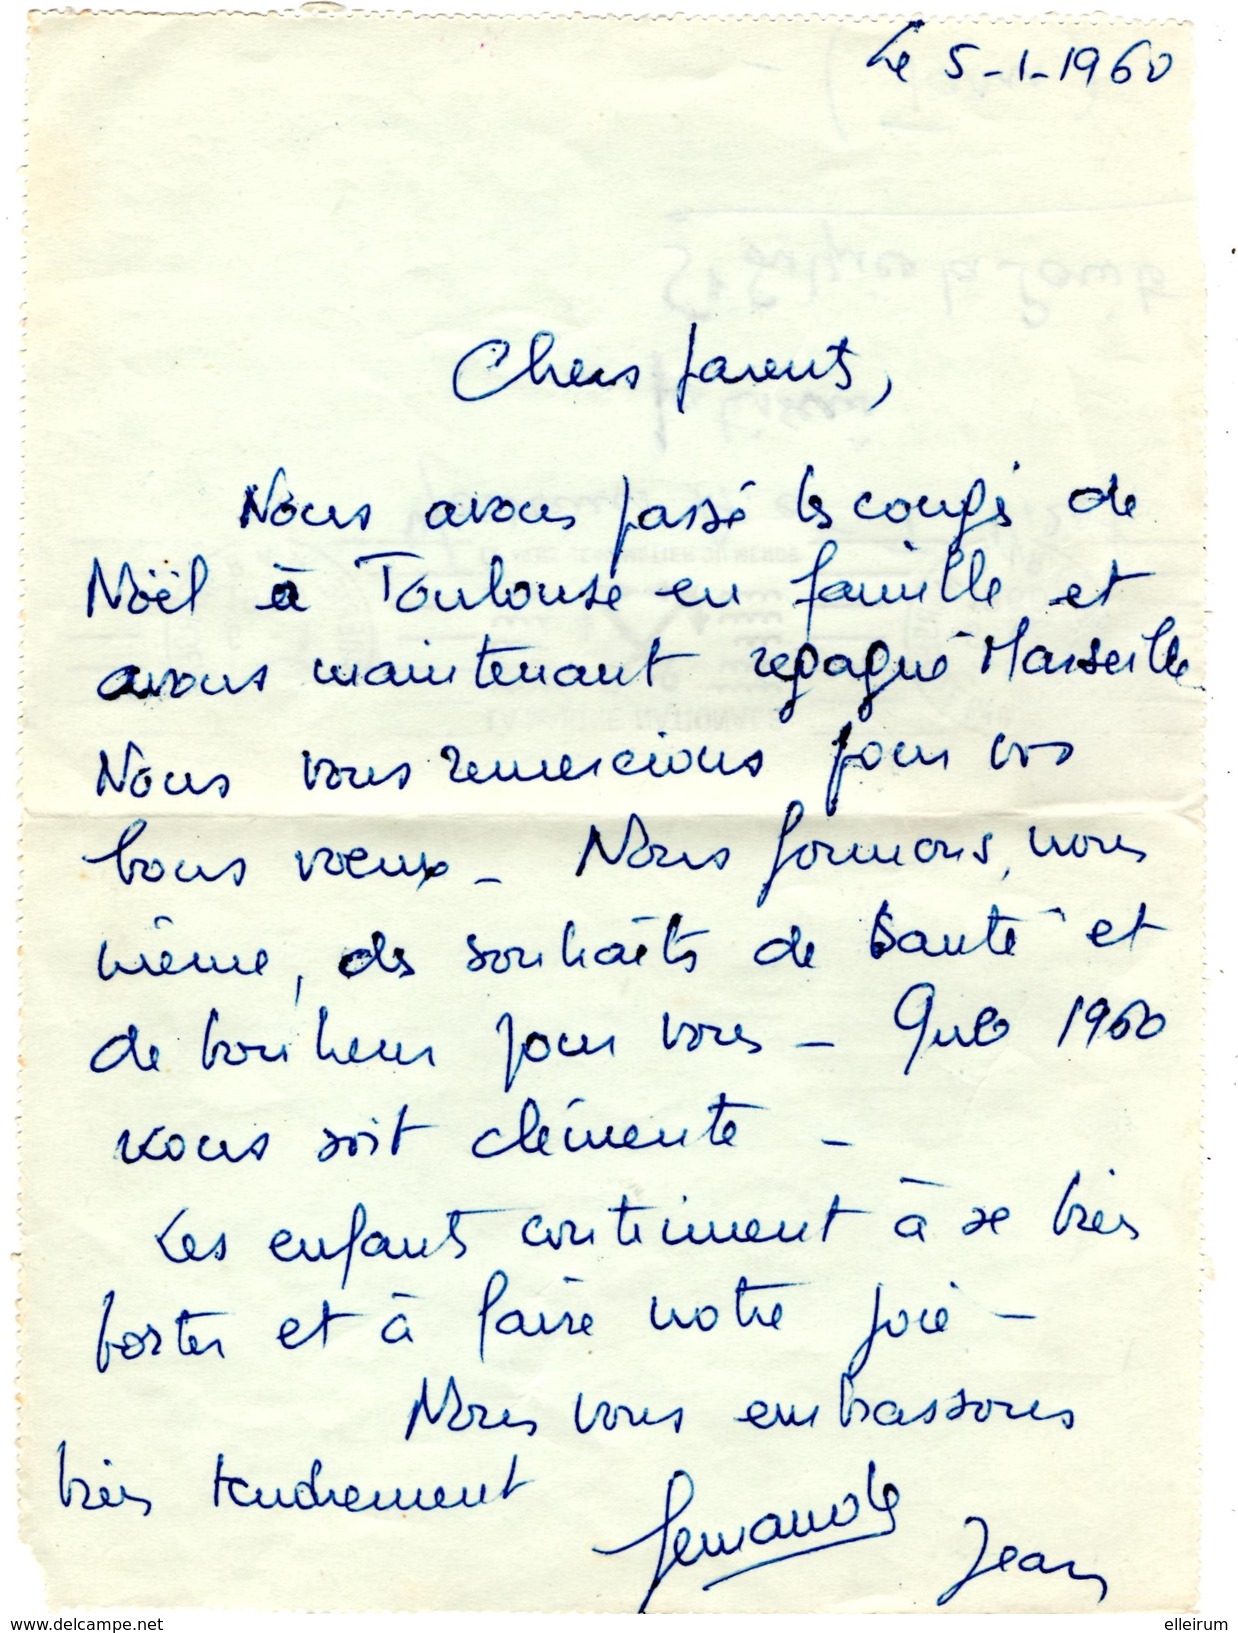 Le 5-1-1960
Chers parents,
Nous avons passé les congés de
Noël à Toulouse en famille et
avons maintenant regagné Marseille
Nous vous remercions pour vos
bons voeux - Nous formons, nous
même, des souhaits de santé et
de bonheur pour vous - Que 1960
vous soit clémente -
Les enfants continuent à se bien
porter et à faire notre joie -
Nous vous embrassons
bien tendrement
Fernande Jean
delcampe.net
elleirum